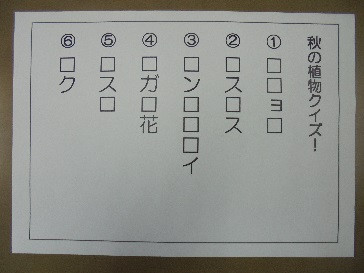 秋の植物クイズ!
① □□ョ□
② □ス□ス
③ □ン□□□イ
④ □ガ□花
⑤ □ス□
⑥ □ク